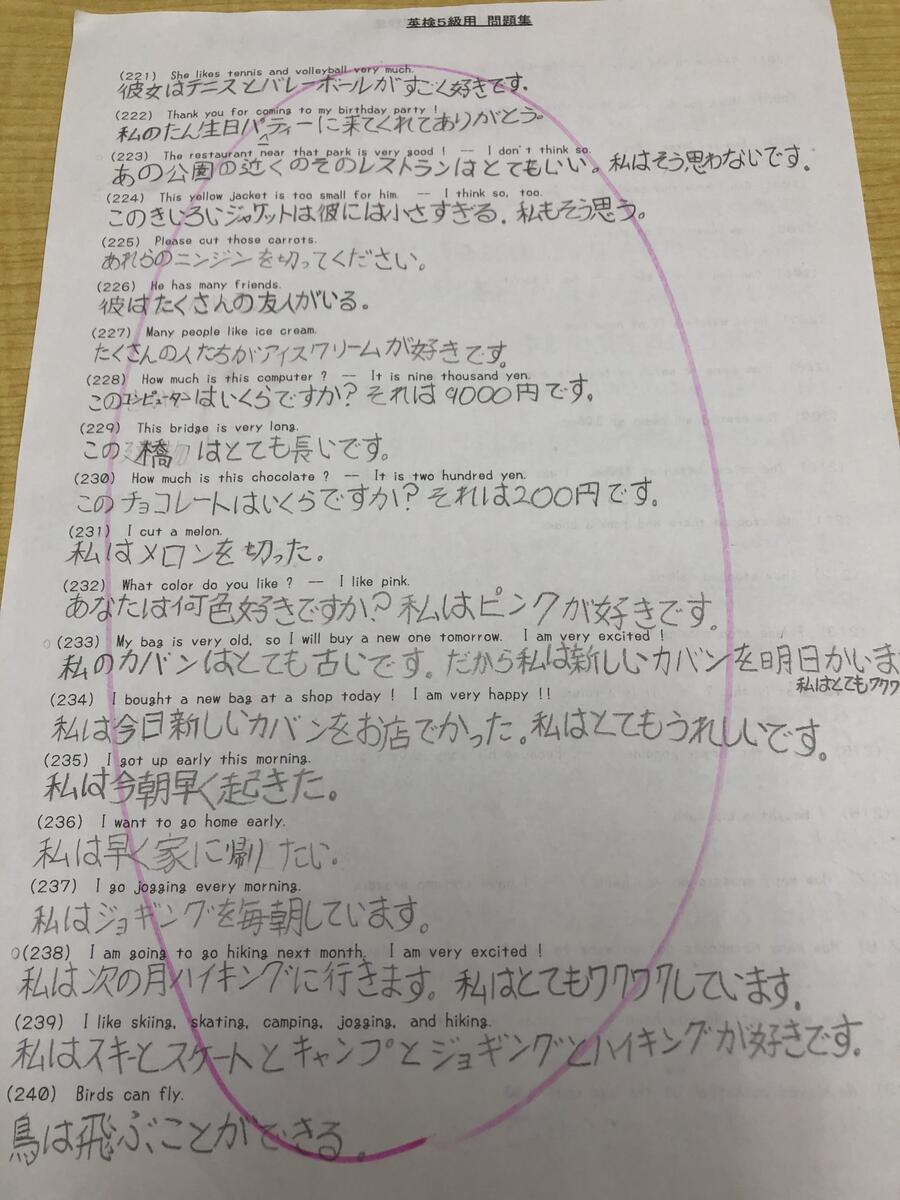 英検5級用 問題集
(221) She likes tennis and volleyball very much.
彼女はテニスとバレーボールがすごく好きです。
(222) Thank you for coming to my birthday party !
私のたん生日パティーに来てくれてありがとう。
(223) The restaurant near that park is very good ! -- I don't think so.
あの公園の近くのそのレストランはとてもいい。私はそう思わないです。
(224) This yellow jacket is too small for him. -- I think so, too.
このきいろいジャケットは彼には小さすぎる。私もそう思う。
(225) Please cut those carrots.
あれらのニンジンを切ってください。
(226) He has many friends.
彼はたくさんの友人がいる。
(227) Many people like ice cream.
たくさんの人たちがアイスクリームが好きです。
(228) How much is this computer ? -- It is nine thousand yen.
このコンピューターはいくらですか? それは9000円です。
(229) This bridge is very long.
この橋はとても長いです。
(230) How much is this chocolate ? -- It is two hundred yen.
このチョコレートはいくらですか? それは200円です。
(231) I cut a melon.
私はメロンを切った。
(232) What color do you like ? -- I like pink.
あなたは何色好きですか? 私はピンクが好きです。
(233) My bag is very old, so I will buy a new one tomorrow. I am very excited !
私のカバンはとても古いです。だから私は新しいカバンを明日かいま
私はとてもワクワ
(234) I bought a new bag at a shop today ! I am very happy !!
私は今日新しいカバンをお店でかった。私はとてもうれしいです。
(235) I got up early this morning.
私は今朝早く起きた。
(236) I want to go home early.
私は早く家に帰りたい。
(237) I go jogging every morning.
私はジョギングを毎朝しています。
(238) I am going to go hiking next month. I am very excited !
私は次の月ハイキングに行きます。私はとてもワクワクしています。
(239) I like skiing, skating, camping, jogging, and hiking.
私はスキーとスケートとキャンプとジョギングとハイキングが好きです。
(240) Birds can fly.
鳥は飛ぶことができる。